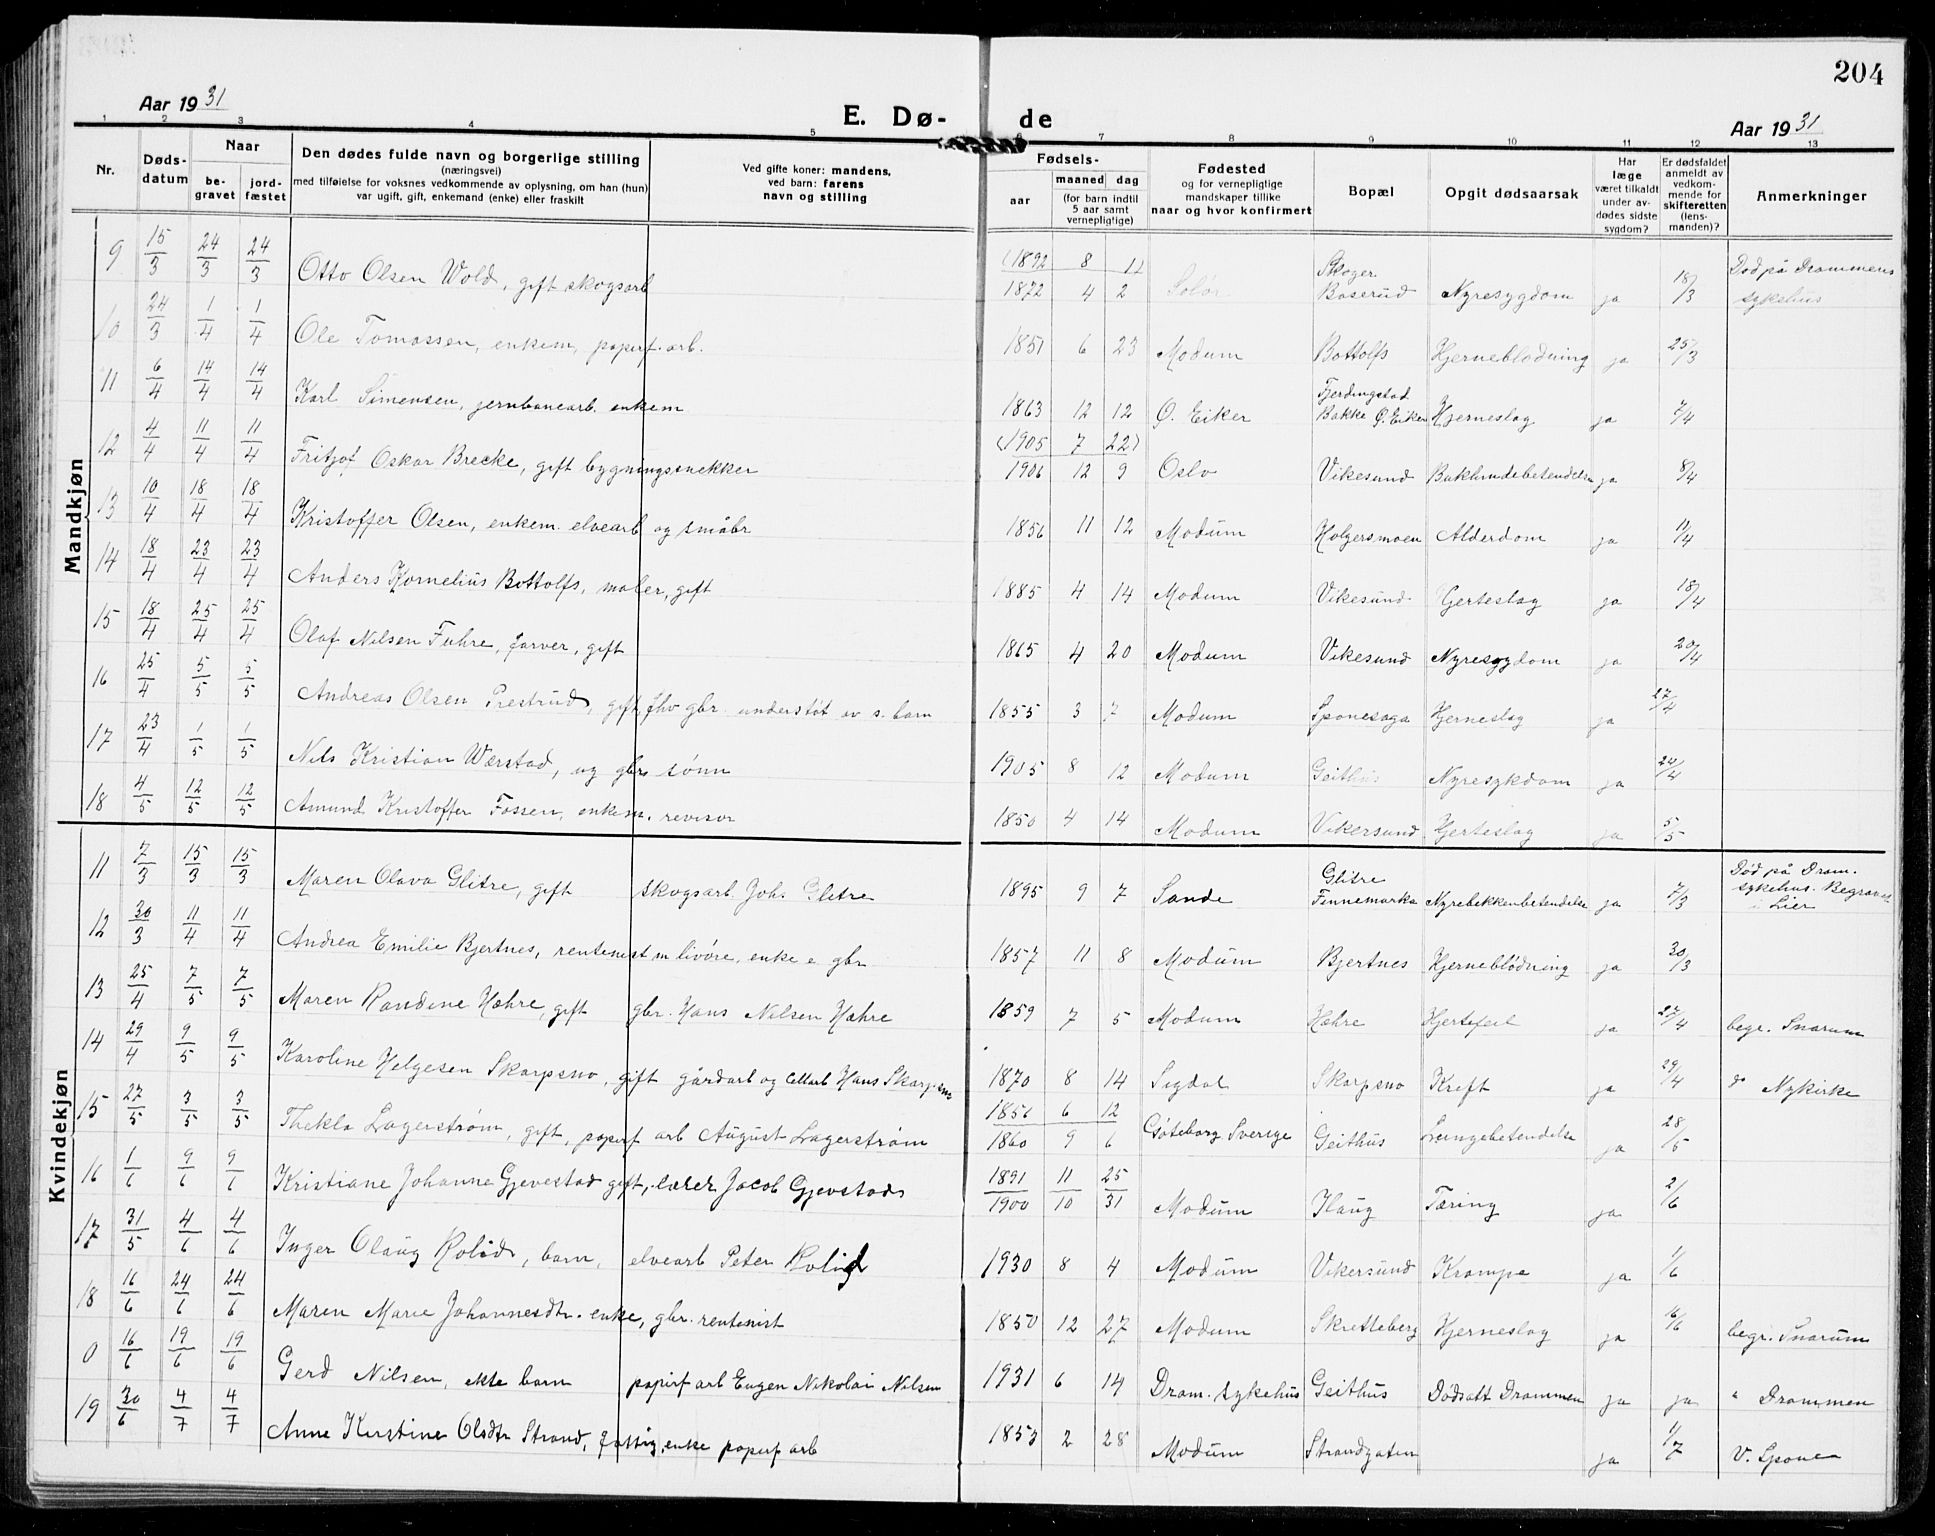 204
Aar 1931
E. Dø- de
Aar 1931
1 2 3 4 5 6 7 8 9 10 11 12 13
Nr.
Døds-datum
Naar
be-gravet
jord-fæstet
Den dødes fulde navn og borgerlige stilling
(næringsvei)
med tilføielse for voksnes vedkommende av oplysning, om han (hun)
var ugift, gift, enkemand (enke) eller fraskilt
Ved gifte koner: mandens,
ved barn: farens
navn og stilling
Fødsels-
aar
maaned dag
(for barn indtil
5 aar samt
vernepligtige)
Fødested
og for vernepligtige
mandskaper tillike
naar og hvor konfirmert
Bopæl
Opgit dødsaarsak
Har
læge
været tilkaldt
under av-
dødes sidste
sygdom?
Er dødsfaldet
anmeldt av
vedkom-
mende for
skifteretten
(lens-
manden)?
Anmerkninger
Mandkjøn
9 15/3 24/3 24/3 Otto Olsen Wold, gift skogsarb (1892 8 11 1872 4 2 Solør Skoger Baserud Nyresygdom ja 18/3 Død på Drammens sykehus
10 24/3 1/4 1/4 Ole Tomassen, enkem, papirf. arb. 1851 6 23 Modum Bottolfs Hjerneblødning ja 25/3
11 6/4 14/4 14/4 Karl Simensen, jernbanearb. enkem 1863 12 12 Ø. Eiker Fjerdingstad Bakke Ø. Eiker Hjerneslag ja 7/4
12 4/4 11/4 11/4 Fritjof Oskar Brecke, gift bygningssnekker (1905 7 22) 1906 12 9 Oslo Vikesund Bukhindebetendelse ja 8/4
13 10/4 18/4 18/4 Kristoffer Olsen, enkem. elvearb og småbr 1856 11 12 Modum Holgersmoen Alderdom ja 11/4
14 18/4 23/4 23/4 Anders Kornelius Bottolfs, maler, gift 1885 4 14 Modum Vikesund Hjerteslag ja 18/4
15 18/4 25/4 25/4 Olaf Nilsen Fuhre, farver, gift 1865 4 20 Modum Vikesund Nyresygdom ja 20/4
16 25/4 5/5 5/5 Andreas Olsen Prestrud, gift, fhv gbr. understøt av s. barn 1855 3 7 Modum Sponesaga Hjerneslag ja 27/4
17 23/4 1/5 1/5 Nils Kristian Wærstad, ug gbrs sønn 1905 8 12 Modum Geithus Nyresykdom ja 24/4
18 4/5 12/5 12/5 Amund Kristoffer Fossen, enkem. revisor 1850 4 14 Modum Vikersund Hjerteslag ja 5/5
Kvindekjøn
11 7/3 15/3 15/3 Maren Olava Glitre, gift skogsarb. Joh. Glitre 1895 9 7 Sande Glitre Finnemarka Nyrebekkenbetendelse ja 7/3 Død på Dram. sykehus. Begravet i Lier
12 30/3 11/4 11/4 Andrea Emilie Bjertnes, rentenist m livøre, enke e gbr 1857 11 8 Modum Bjertnes Hjerneblødning ja 30/3
13 25/4 7/5 7/5 Maren Randine Hæhre, gift gbr. Hans Nilsen Hæhre 1859 7 5 Modum Hæhre Hjertefeil ja 27/4 begr. Snarum
14 29/4 9/5 9/5 Karoline Helgesen Skarpsno, gift gårdarb og cellarb Hans Skarpsno 1870 8 14 Sigdal Skarpsno Kreft ja 29/4 do Nykirke
15 27/5 3/5 3/5 Thekla Lagerstrøm, gift, papirf arb August Lagerstrøm 1856 6 12 1860 9 6 Gøteborg Sverige Geithus Lungebetendelse ja 28/5
16 1/6 9/6 9/6 Kristiane Johanne Gjevestad gift, lærer Jacob Gjevstads 1891 11 25 1900 10 31 Modum Haug Tæring ja 2/6
17 31/5 4/6 4/6 Inger Olaug Rolid, barn, elvearb Peter Rolid 1930 8 4 Modum Vikersund Krampe ja 1/6
18 16/6 24/6 24/6 Maren Marie Johannesdtr. enke, gbr. rentenist 1850 12 27 Modum Skretteberg Hjerneslag ja 16/6 begr. Snarum
0 16/6 19/6 19/6 Gerd Nilsen, ekte barn papirf arb Eugen Nikolai Nilsen 1931 6 14 Dram. sykehus Geithus Dødsatt Drammen ja ja " Drammen
19 30/6 4/7 4/7 Anne Kirstine Olsdtr Strand, fattig, enke papirf arb 1853 2 28 Modum Strandgaten ja 1/7 V. Spone